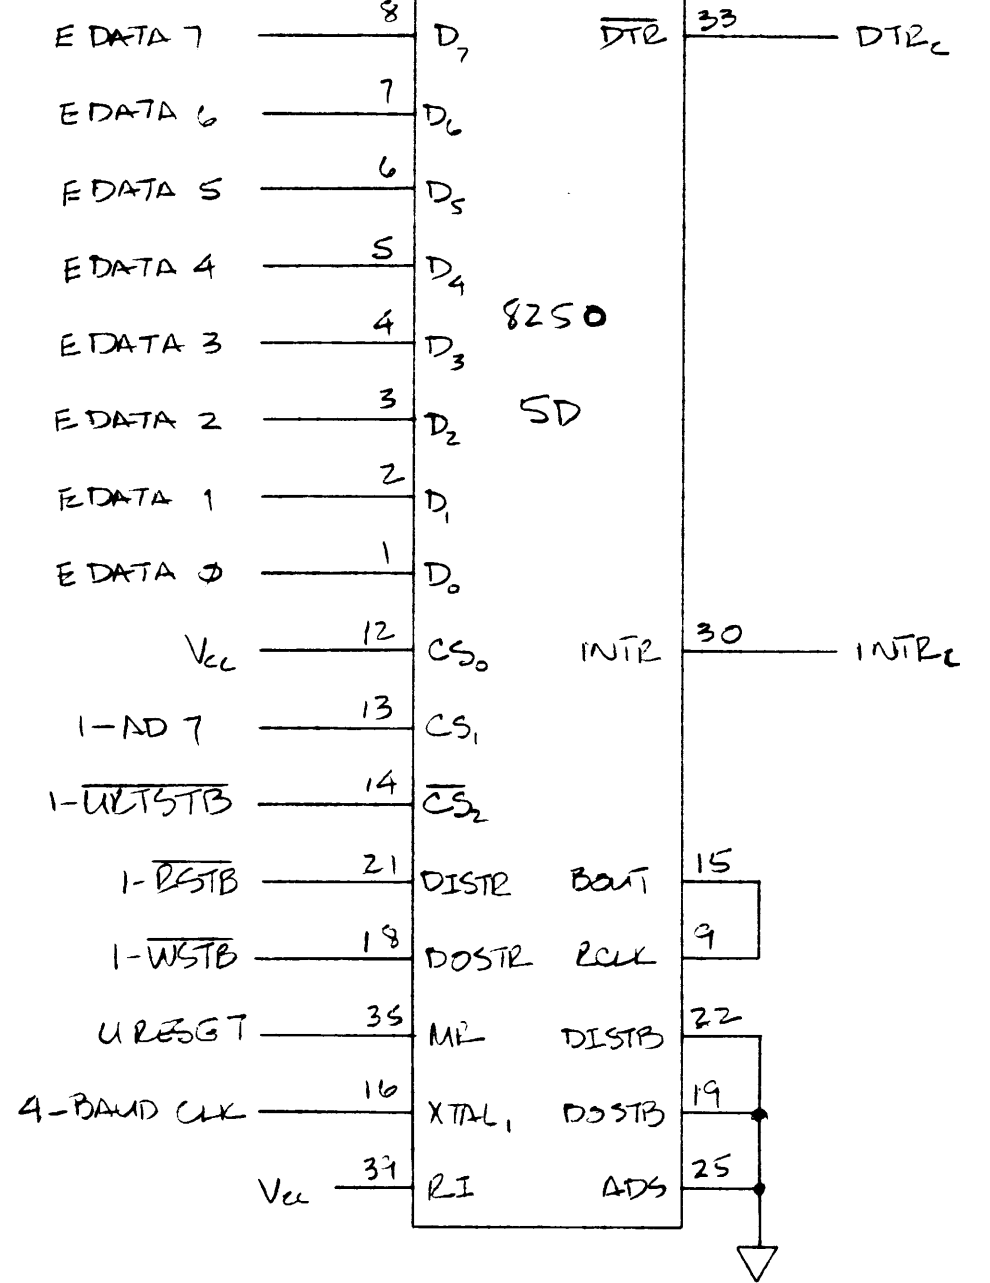 E DATA 7 8 D7 DTR 33 DTRc
E DATA 6 7 D6
E DATA 5 6 D5
E DATA 4 5 D4
8250
E DATA 3 4 D3
E DATA 2 3 D2 5D
E DATA 1 2 D1
E DATA 0 1 D0
Vcc 12 CS0 INTR 30 INTRc
1-AD 7 13 CS1
1-URTSTB 14 CS2
1-RSTB 21 DISTR BOUT 15
1-WSTB 18 DOSTR RCLK 9
U RESET 35 MR DISTB 22
4-BAUD CLK 16 XTAL1 DOSTB 19
Vcc 39 RI ADS 25